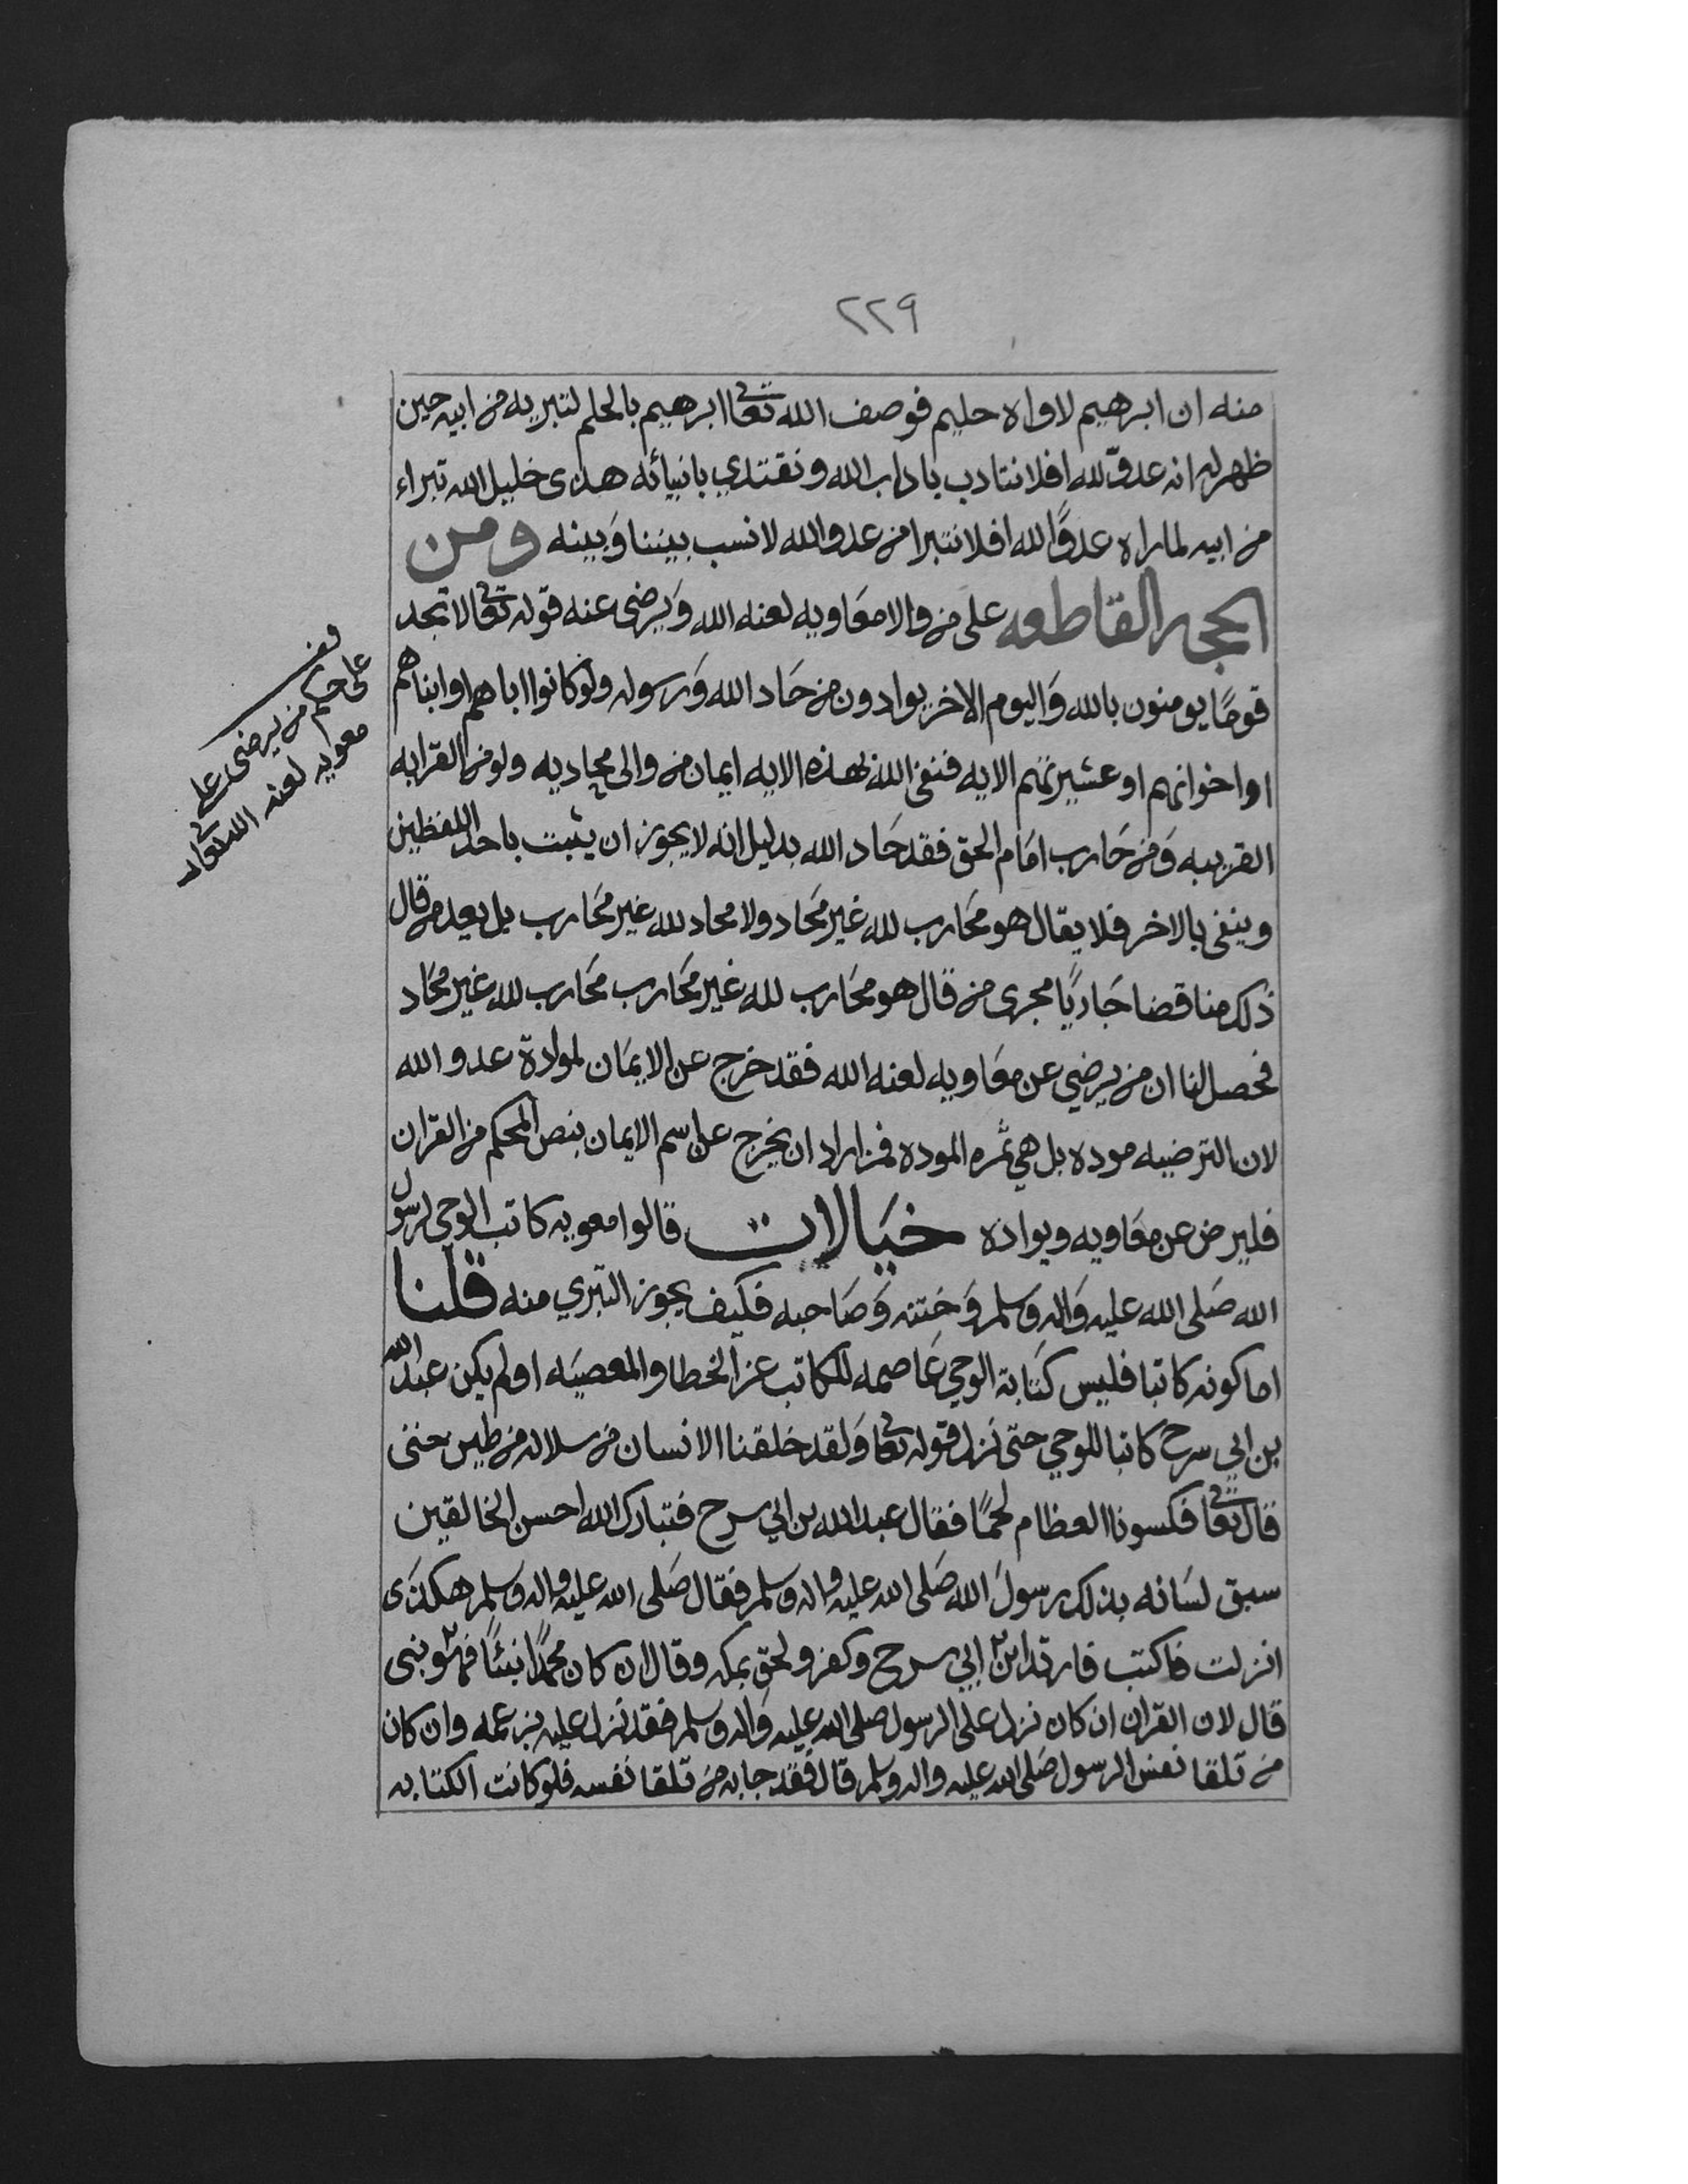 ٢٢٩
منه ان ابرهيم لاواه حليم فوصف الله تعالى ابرهيم بالحلم لتبريه من ابيه حين
ظهر له انه عدوّ لله افلا نتادب باداب الله ونقتدي بانبيائه هذى خليل الله تبراء
من ابيه لما راه عدوًا لله افلا نتبرا من عدو الله لا نسب بيننا وَبينه ومن
الحجج القاطعه على من والا معَاويه لعنه الله وَيرضى عنه قوله تعالى لا تجد
قومًا يومنون بالله وَاليوم الاخر يوادون من حَاد الله وَرسوله ولو كانوا اباهم او ابناهم
او اخوانهم او عشيرتهم الايه فنفى الله بهذه الايه ايمان من والى محاديه ولو من القرابه
القريبه وَمن حَارب امَام الحق فقد حَاد الله بدليل انه لا يجوز ان يثبت باحد اللفظين
وينفى بالاخر فلا يقال هو محَارب لله غير محَاد ولا محاد لله غير محَارب بل يعد من قال
ذلك مناقضا جَاريًا مجرى من قال هو محَارب لله غير محَارب محَارب لله غير محَاد
فحصل لنا ان من يرضي عن معَاويه لعنه الله فقد خرج عن الايمَان لموادة عدو الله
لان الترضيه موده بل هي ثمره الموده فمن اراد ان يخرج عن اسم الايمان بنص المحكم من القران
فليرض عن معَاويه ويواده خيَالات قالوا معويه كاتب الوحي لرسول
الله صَلى الله عليه وَاله وسلم وَختنه وَصَاحبه فكيف يجوز التبري منه قلنا
اما كونه كاتبا فليس كتَابة الوحي عَاصمه للكاتب عن الخطا والمعصيَه اولم يكن عبد الله
بن ابي سرح كاتبا للوحي حتى نزل قوله تعالى وَلقد خلقنا الانسان من سلاله من طين حتى
قال تعالى فكسونا العظام لحمًا فقال عبد الله بن ابي سرح فتبارك الله احسن الخالقين
سبق لسَانه بذلك رسولَ الله صَلى الله عليه واله وسلم فقال صَلى الله عليه واله وسلم هكذى
انزلت فاكتب فارتد ابن ابي سرح وكفر ولحق بمكه وقال ان كان محمدًا نبئًا فهو نبى
قال لان القران ان كان نزل على الرسول صلى الله عليه وَاله وسلم فقد نزل عليه بزعمه وان كان
من تلقا نفس الرسول صَلى الله عليه واله وسلم قال فقد جا به من تلقا نفسه فلو كانت الكتابه
قف
على حكم من يرضى على
معويه لعنه الله تعالى